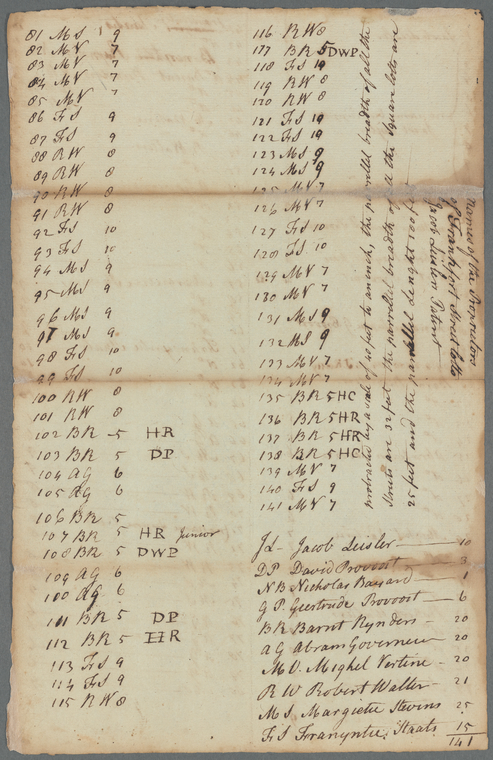 81 MS 9
82 MV 7
83 MV 7
84 MV 7
85 MV 7
86 FS 9
87 FS 9
88 RW 8
89 RW 8
90 RW 8
91 RW 8
92 FS 10
93 FS 10
94 MS 9
95 MS 9
96 MS 9
97 MS 9
98 FS 10
99 FS 10
100 RW 8
101 RW 8
102 BR 5 HR
103 BR 5 DP
104 AG 6
105 AG 6
106 BR 5
107 BR 5 HR Junior
108 BR 5 DWP
109 AG 6
100 AG 6
111 BR 5 DP
112 BR 5 HR
113 FS 9
114 FS 9
115 RW 8
116 RW 8
117 BR 5 DWP
118 FS 19
119 RW 8
120 RW 8
121 FS 19
122 FS 19
123 MS 9
124 MS 9
125 MV 7
126 MV 7
127 FS 10
128 FS 10
129 MV 7
130 MV 7
131 MS 9
132 MS 9
133 MV 7
134 MV 7
135 BR 5 HC
136 BR 5 HR
137 BR 5 HR
138 BR 5 HC
139 MV 7
140 FS 9
141 MV 7
JL Jacob Leisler 10
DP David Provoost 3
NB Nicholas Bayard 1
GP Geertrude Provoost 6
BR Barnt Rynders 20
AG Abram Governeur 20
MV Mighel Vertine 20
RW Robert Walter 21
MS Margietie Stevins 25
FS Franyntie Staats 15
141
protracted by a scale of 40 feet to an inch, the parrellel breadth of all the
Streets are 32 feet the parrellel breadth of all the Square lotts are
25 feet and the parrellel lenght 100 feet
Names of the Proprietors
of Frankfort Street lotts
Jacob Leislers Patent